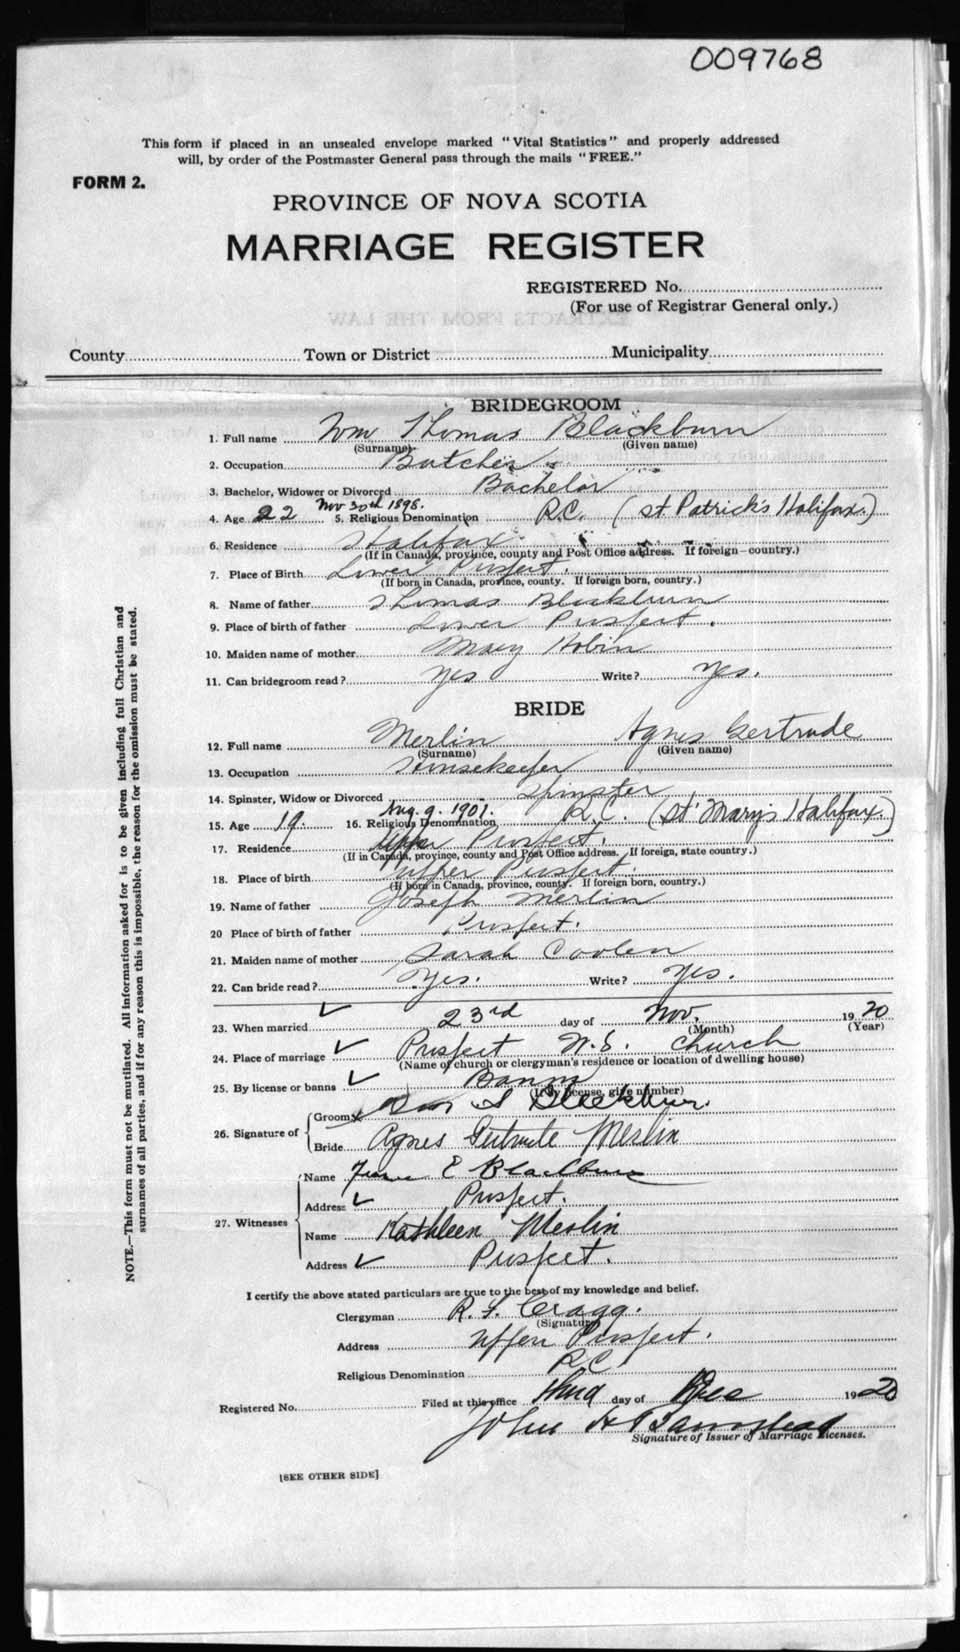 009768
This form if placed in an unsealed envelope marked "Vital Statistics" and properly addressed
will, by order of the Postmaster General pass through the mails "FREE."
FORM 2.
PROVINCE OF NOVA SCOTIA
MARRIAGE REGISTER
REGISTERED No.
(For use of Registrar General only.)
EXTRACTS FROM THE LAW
County Town or District Municipality
BRIDEGROOM
1. Full name Wm Thomas Blackburn
(Surname) (Given name)
2. Occupation Butcher
3. Bachelor, Widower or Divorced Bachelor
Nov 30th 1898.
4. Age 22 5. Religious Denomination R.C. (St Patrick's Halifax.)
6. Residence Halifax.
(If in Canada, province, county and Post Office address. If foreign—country.)
7. Place of Birth Lower Prospect.
(If born in Canada, province, county. If foreign born, country.)
8. Name of father Thomas Blackburn
9. Place of birth of father Lower Prospect.
10. Maiden name of mother Mary Hobin
11. Can bridegroom read? Yes Write? Yes.
BRIDE
12. Full name Merlin Agnes Gertrude
(Surname) (Given name)
13. Occupation Housekeeper
14. Spinster, Widow or Divorced Spinster
Aug. 9. 1901.
15. Age 19 16. Religious Denomination R.C. (St Mary's Halifax.)
17. Residence Upper Prospect.
(If in Canada, province, county and Post Office address. If foreign, state country.)
18. Place of birth Upper Prospect.
(If born in Canada, province, county. If foreign born, country.)
19. Name of father Joseph Merlin
20 Place of birth of father Prospect.
21. Maiden name of mother Sarah Coolen
22. Can bride read? Yes. Write? Yes.
23. When married 23rd day of Nov. 1920
(Month) (Year)
24. Place of marriage Prospect N.S. Church
(Name of church or clergyman's residence or location of dwelling house)
25. By license or banns Banns
(If by license, give number)
26. Signature of Groom x Wm T Blackburn.
Bride Agnes Gertrude Merlin
27. Witnesses Name E Blackburn
Address Prospect.
Name Kathleen Merlin
Address Prospect.
I certify the above stated particulars are true to the best of my knowledge and belief.
Clergyman R. F. Cragg.
(Signature)
Address Upper Prospect.
Religious Denomination RC
Registered No. Filed at this office third day of Dec 1920
John H Barnstead
Signature of Issuer of Marriage Licenses.
[SEE OTHER SIDE]
NOTE.—This form must not be mutilated. All information asked for is to be given including full Christian and
surnames of all parties, and if for any reason this is impossible, the reason for the omission must be stated.